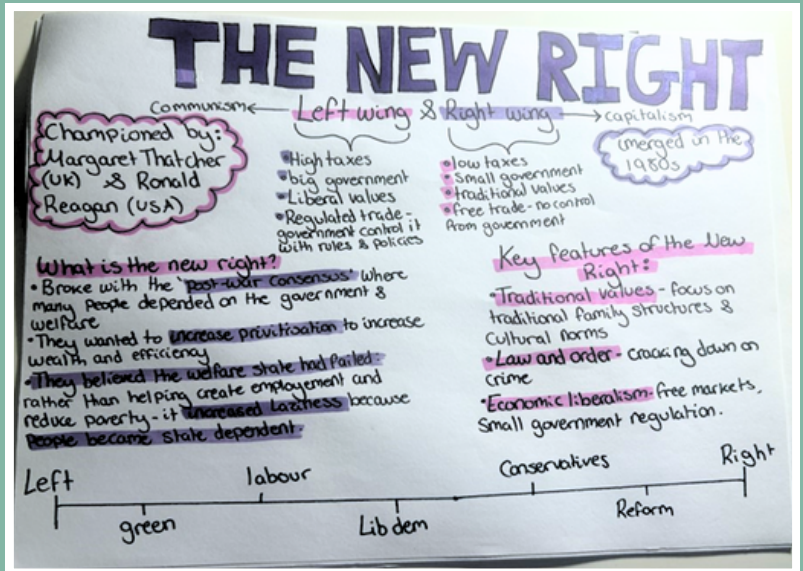 THE NEW RIGHT
Communism ← Left wing & Right wing → capitalism
Championed by:
Margaret Thatcher
(UK) & Ronald
Reagan (USA)
•High taxes
•big government
•Liberal values
•Regulated trade -
government control it
with rules & policies
•low taxes
•small government
•traditional values
•free trade - no control
from government
emerged in the
1980s
What is the new right?
•Broke with the 'post-war consensus' where
many people depended on the government &
welfare
•They wanted to increase privitisation to increase
wealth and efficiency
•They believed the welfare state had failed:
rather than helping create employement and
reduce poverty - it increased laziness because
people became state dependent.
Key features of the New
Right:
•Traditional values - focus on
traditional family structures &
cultural norms
•Law and order - cracking down on
crime
•Economic liberalism - free markets,
small government regulation.
Left
green
labour
Lib dem
Conservatives
Reform
Right